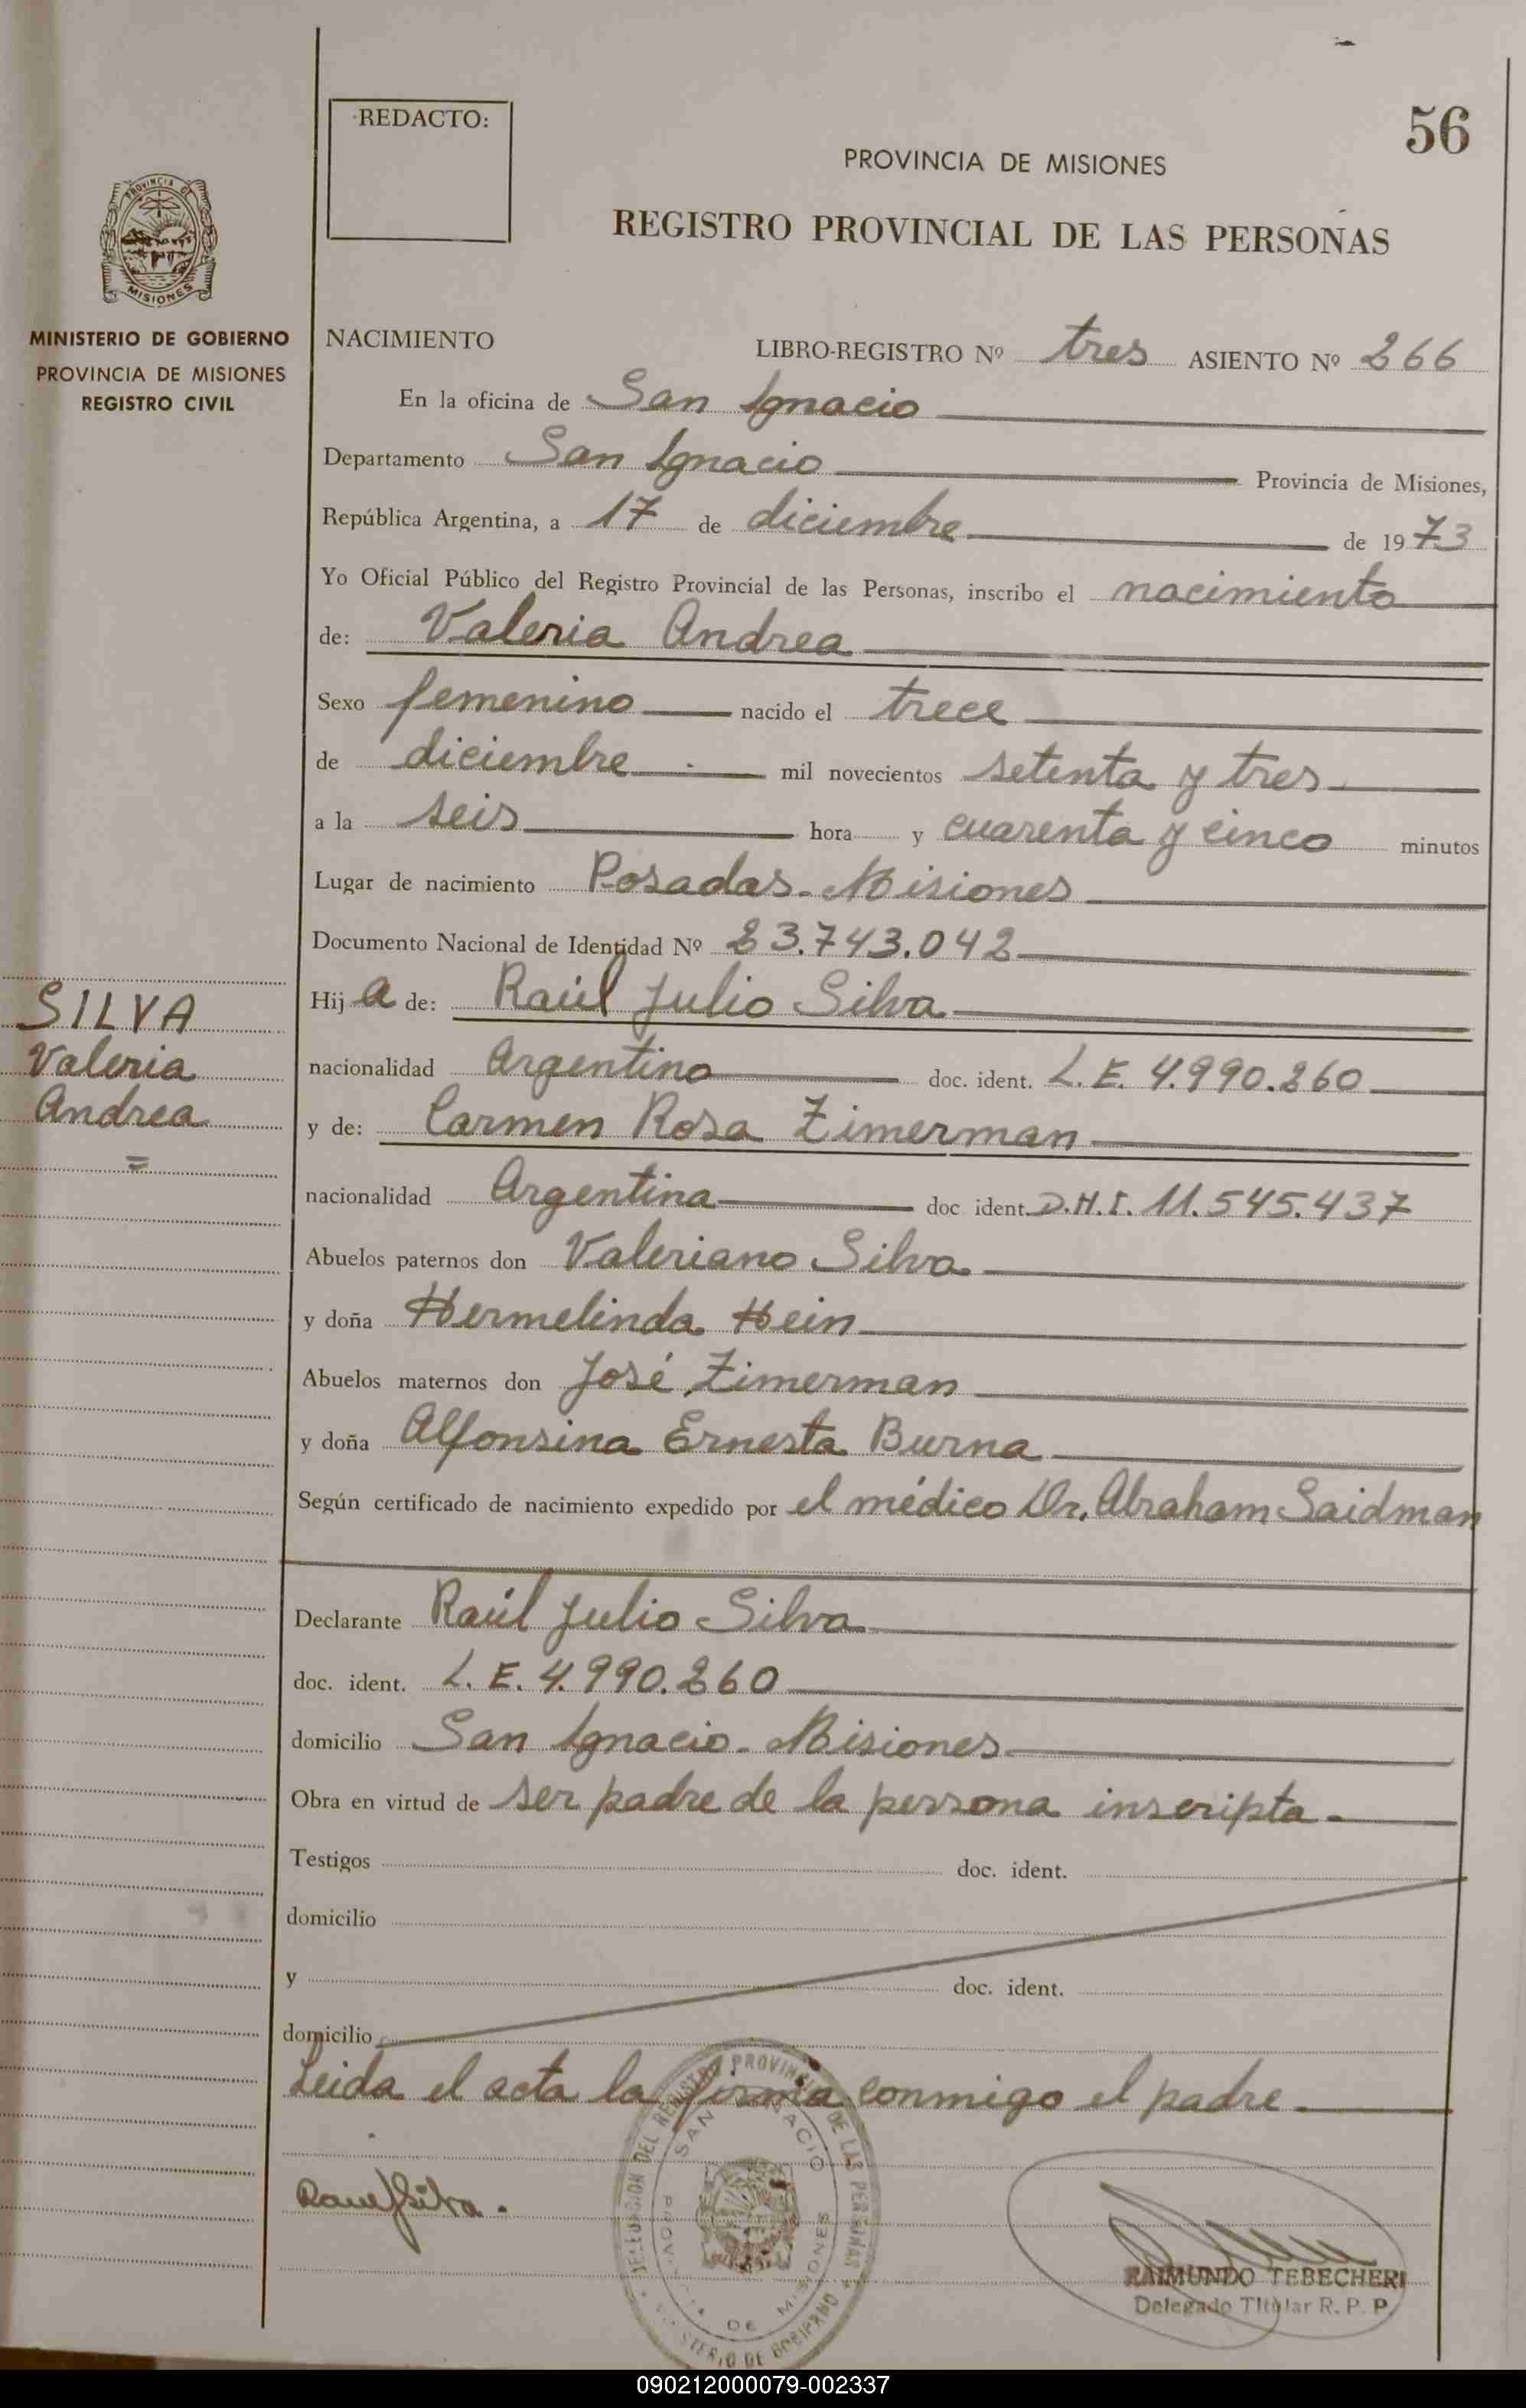 REDACTO:
56
PROVINCIA DE MISIONES
REGISTRO PROVINCIAL DE LAS PERSONAS
PROVINCIA DE
MISIONES
MINISTERIO DE GOBIERNO
PROVINCIA DE MISIONES
REGISTRO CIVIL
NACIMIENTO
LIBRO-REGISTRO Nº tres ASIENTO Nº 266
En la oficina de San Ignacio
Departamento San Ignacio Provincia de Misiones,
República Argentina, a 17 de diciembre de 1973
Yo Oficial Público del Registro Provincial de las Personas, inscribo el nacimiento
de: Valeria Andrea
Sexo femenino nacido el trece
de diciembre mil novecientos setenta y tres
a la seis hora y cuarenta y cinco minutos
Lugar de nacimiento Posadas - Misiones
Documento Nacional de Identidad Nº 23.743.042
SILVA
Valeria
Andrea
=
Hij a de: Raúl Julio Silva
nacionalidad Argentino doc. ident. L.E. 4.990.260
y de: Carmen Rosa Zimerman
nacionalidad Argentina doc ident. D.N.I. 11.545.437
Abuelos paternos don Valeriano Silva
y doña Hermelinda Hein
Abuelos maternos don José Zimerman
y doña Alfonsina Ernesta Burna
Según certificado de nacimiento expedido por el médico Dr. Abraham Saidman
Declarante Raúl Julio Silva
doc. ident. L.E. 4.990.260
domicilio San Ignacio - Misiones
Obra en virtud de ser padre de la persona inscripta.
Testigos doc. ident.
domicilio
y doc. ident.
domicilio
Leida el acta la firma conmigo el padre.
DELEGACION DEL REGISTRO PROVINCIAL DE LAS PERSONAS
SAN IGNACIO
PROVINCIA DE MISIONES
MINISTERIO DE GOBIERNO
RAIMUNDO TEBECHERI
Delegado Titular R. P. P.
090212000079-002337